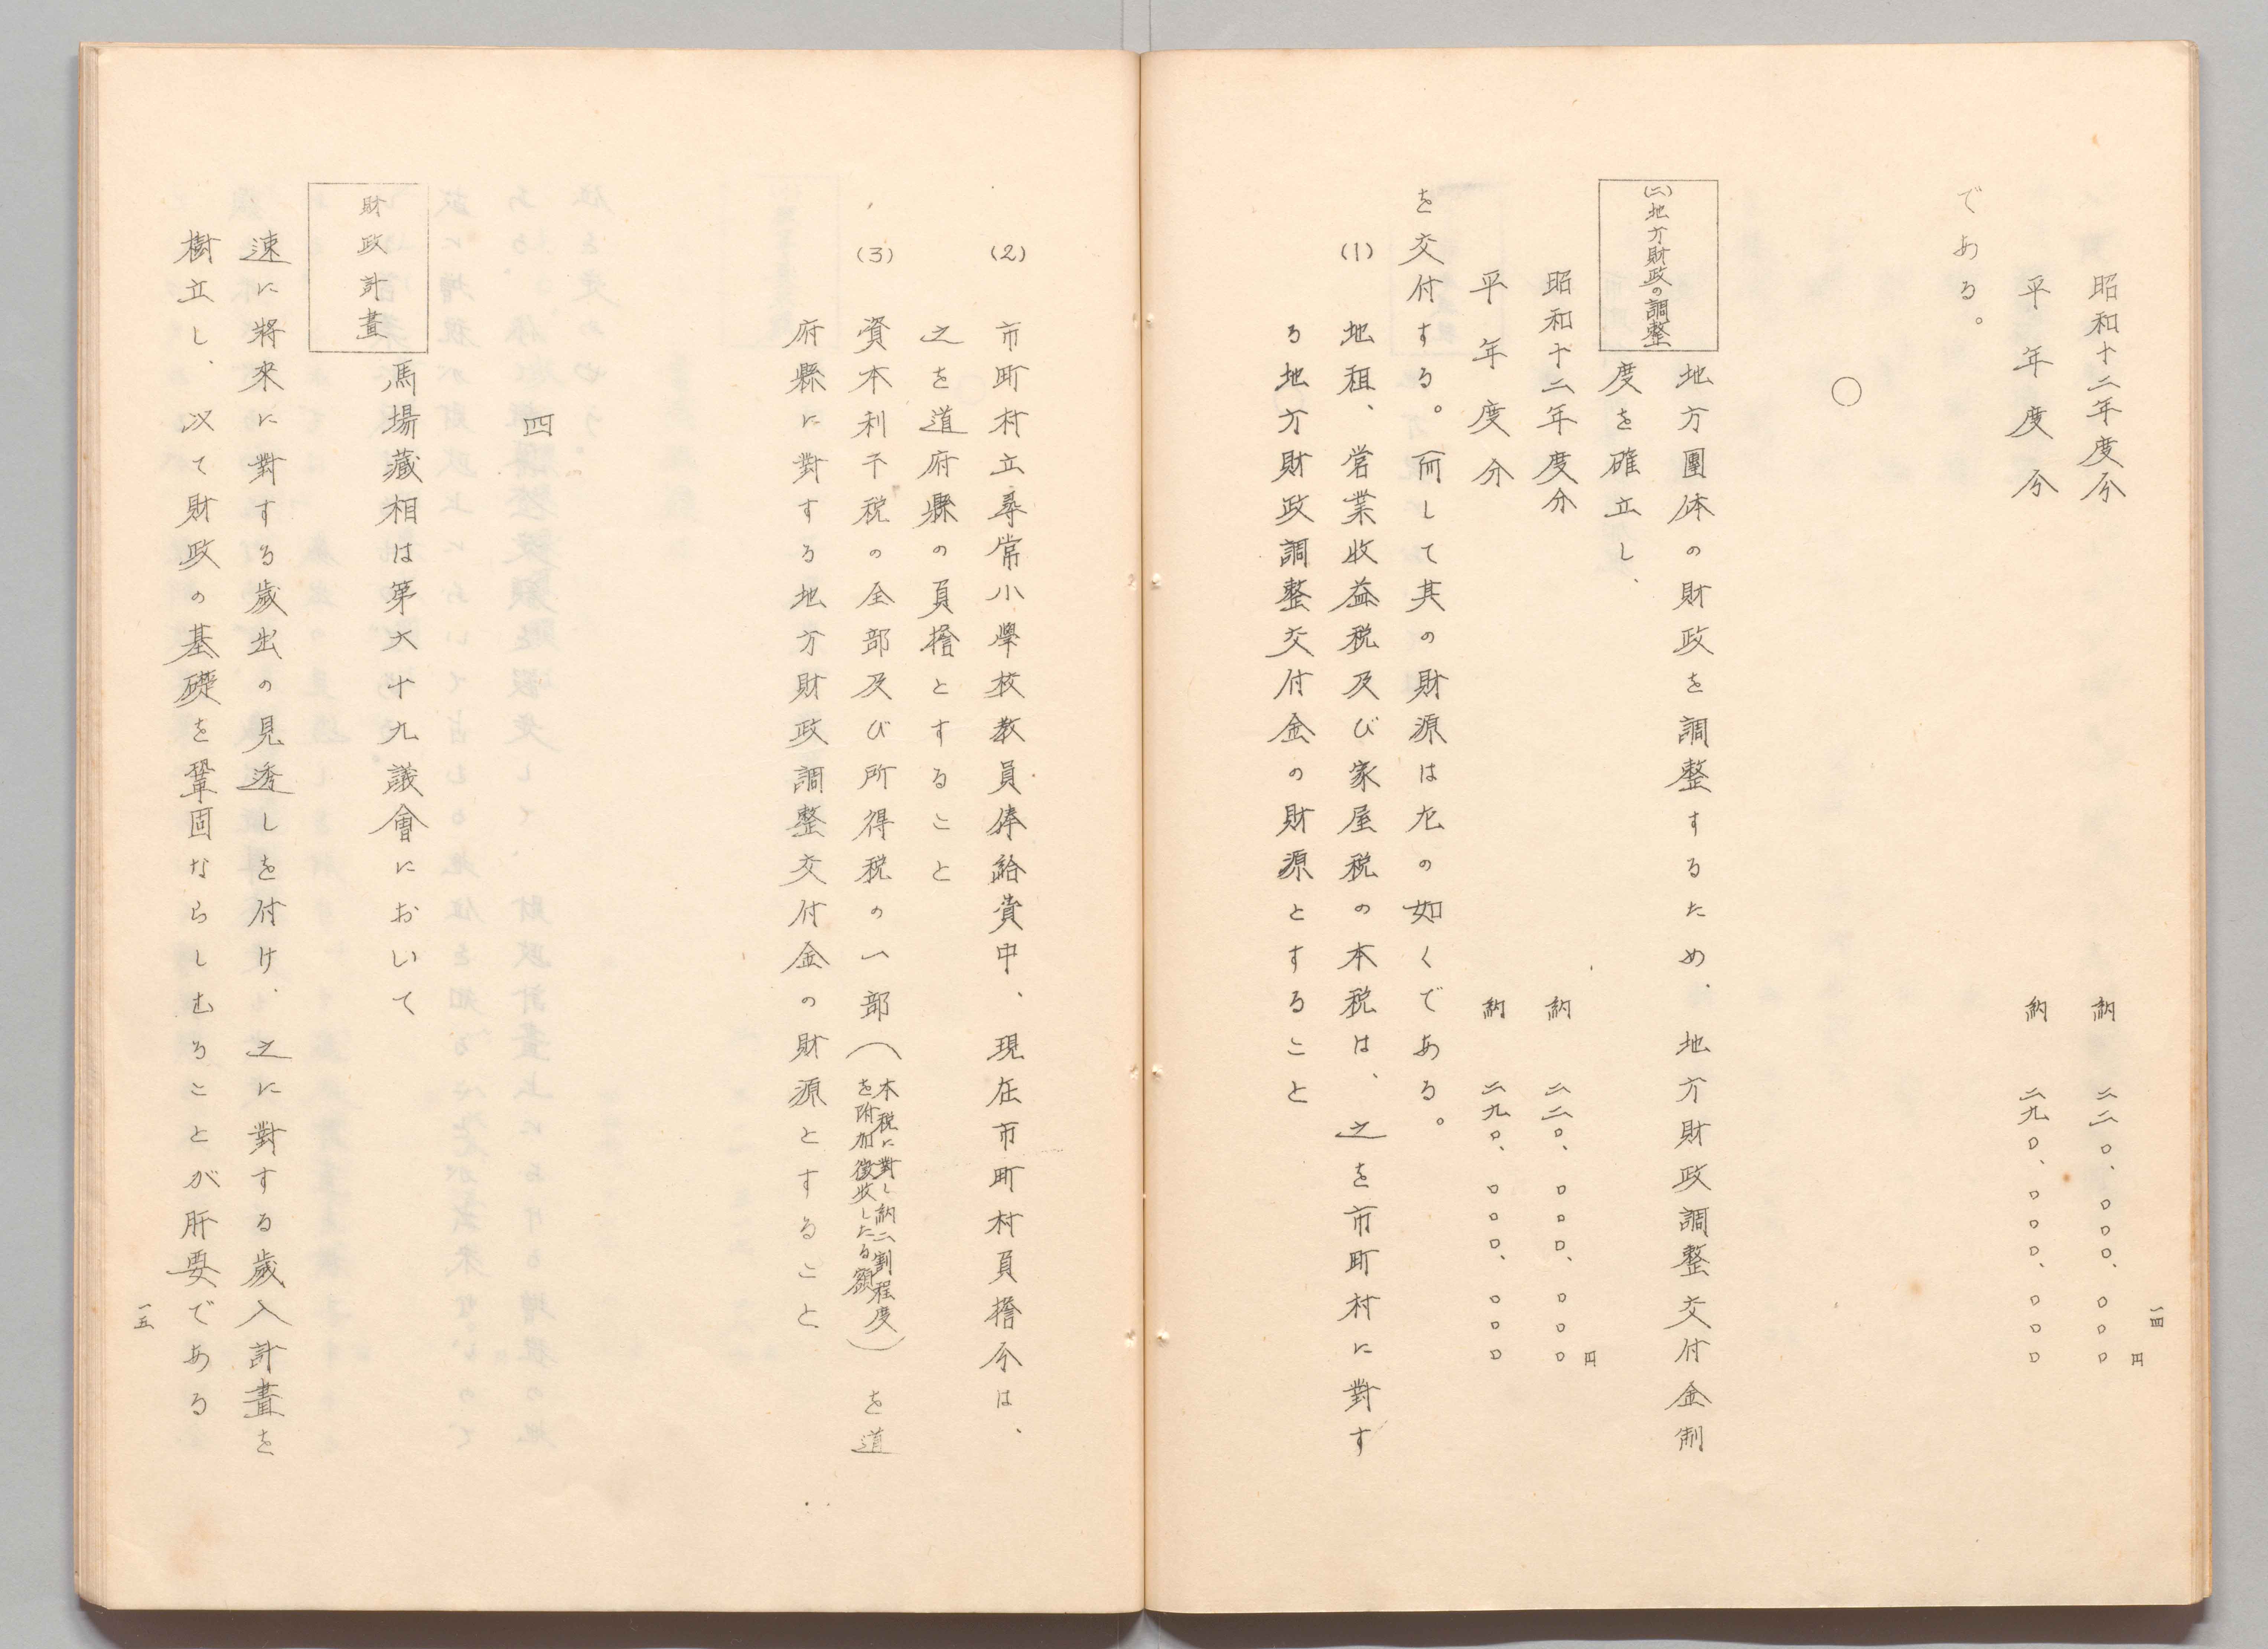 一四
昭和十二年度分　約　二二〇、〇〇〇、〇〇〇円
平年度分　約　二九〇、〇〇〇、〇〇〇
である。
○
(二)地方財政の調整
地方團体の財政を調整するため、地方財政調整交付金制
度を確立し、
昭和十二年度分　約　二二〇、〇〇〇、〇〇〇円
平年度分　約　二九〇、〇〇〇、〇〇〇
を交付する。而して其の財源は左の如くである。
(1)　地租、営業收益税及び家屋税の本税は、之を市町村に對す
る地方財政調整交付金の財源とすること
(2)　市町村立尋常小學校教員俸給費中、現在市町村負擔分は、
之を道府縣の負擔とすること
(3)　資本利子税の全部及び所得税の一部（本税に對し約二割程度を附加徴收したる額）を道
府縣に對する地方財政調整交付金の財源とすること
四
財政計畫
馬場藏相は第六十九議會において
速に將來に對する歳出の見透しを付け、之に對する歳入計畫を
樹立し、以て財政の基礎を鞏固ならしむることが肝要である
一五